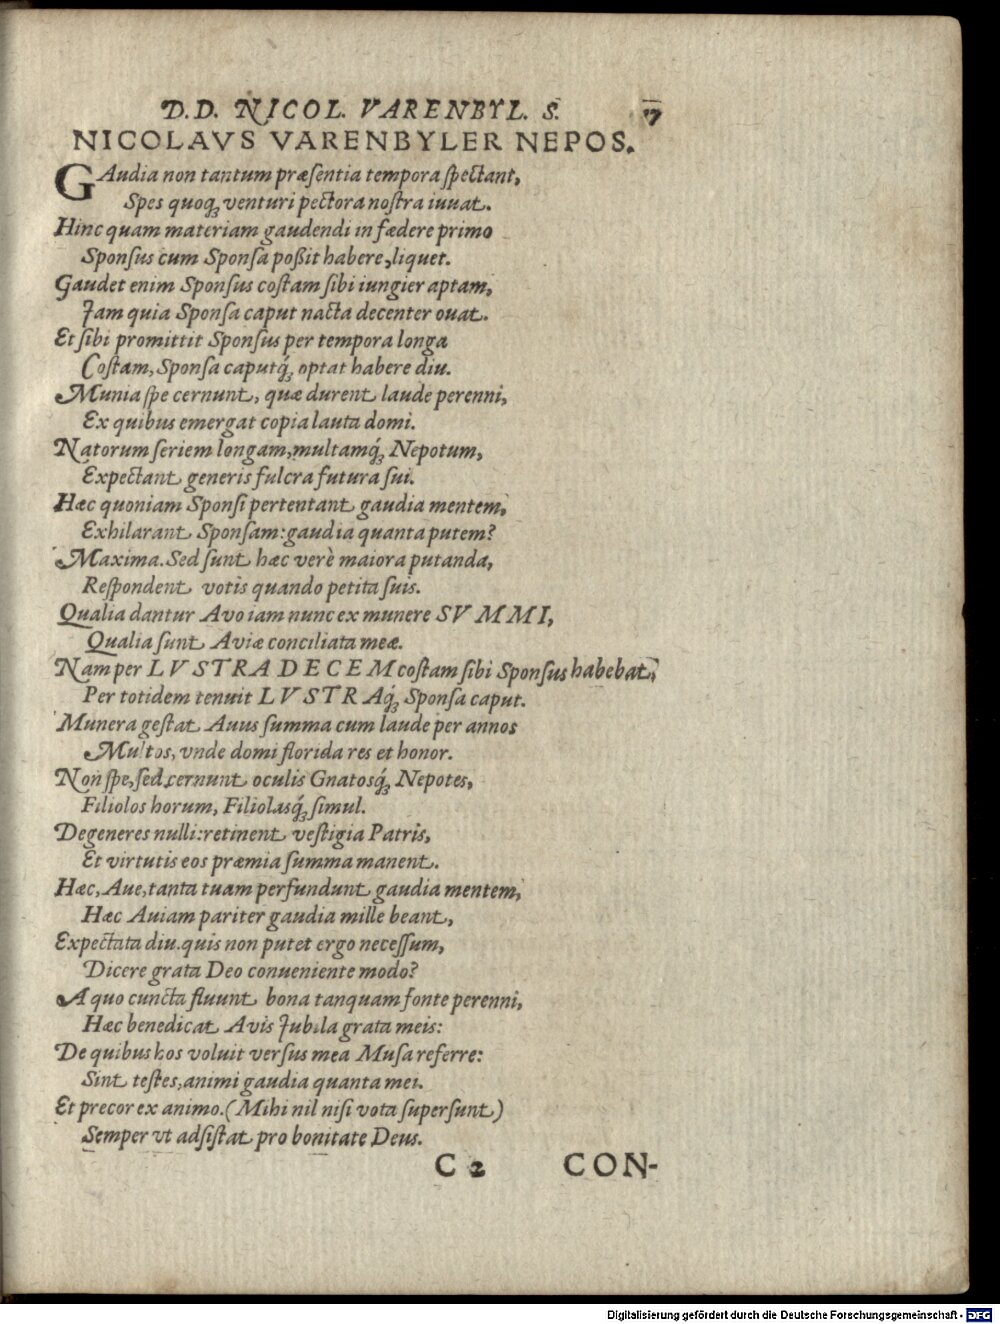 D.D. NICOL. VARENBYL. S. 17
NICOLAVS VARENBYLER NEPOS.
GAudia non tantum præſentia tempora ſpectant,
Spes quoq; venturi pectora noſtra iuuat.
Hinc quam materiam gaudendi in fædere primo
Sponſus cum Sponſa poßit habere, liquet.
Gaudet enim Sponſus coſtam ſibi iungier aptam,
Jam quia Sponſa caput nacta decenter ouat.
Et ſibi promittit Sponſus per tempora longa
Coſtam, Sponſa caputq́; optat habere diu.
Munia ſpe cernunt, quæ durent laude perenni,
Ex quibus emergat copia lauta domi.
Natorum ſeriem longam, multamq́; Nepotum,
Expectant generis fulcra futura ſui.
Hæc quoniam Sponſi pertentant gaudia mentem,
Exhilarant Sponſam: gaudia quanta putem?
Maxima. Sed ſunt hæc verè maiora putanda,
Reſpondent votis quando petita ſuis.
Qualia dantur Avo iam nunc ex munere SVMMI,
Qualia ſunt Aviæ conciliata meæ.
Nam per LVSTRA DECEM coſtam ſibi Sponſus habebat,
Per totidem tenuit LVSTRAq́; Sponſa caput.
Munera geſtat Auus ſumma cum laude per annos
Multos, vnde domi florida res et honor.
Non ſpe, ſed cernunt oculis Gnatosq́; Nepotes,
Filiolos horum, Filiolasq́; ſimul.
Degeneres nulli: retinent veſtigia Patris,
Et virtutis eos præmia ſumma manent.
Hæc, Aue, tanta tuam perfundunt gaudia mentem,
Hæc Auiam pariter gaudia mille beant,
Expectata diu. quis non putet ergo neceſſum,
Dicere grata Deo conueniente modo?
A quo cuncta fluunt bona tanquam fonte perenni,
Hæc benedicat Avis Jubila grata meis:
De quibus hos voluit verſus mea Muſa referre:
Sint teſtes, animi gaudia quanta mei.
Et precor ex animo. (Mihi nil niſi vota ſuperſunt)
Semper vt adſiſtat pro bonitate Deus.
C 2 CON-
Digitalisierung gefördert durch die Deutsche Forschungsgemeinschaft - DFG